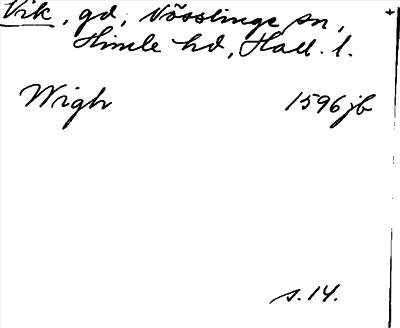 Vik, gd, Nösslinge sn,
Himle hd, Hall. l.
Wigh 1596 jb
s. 14.